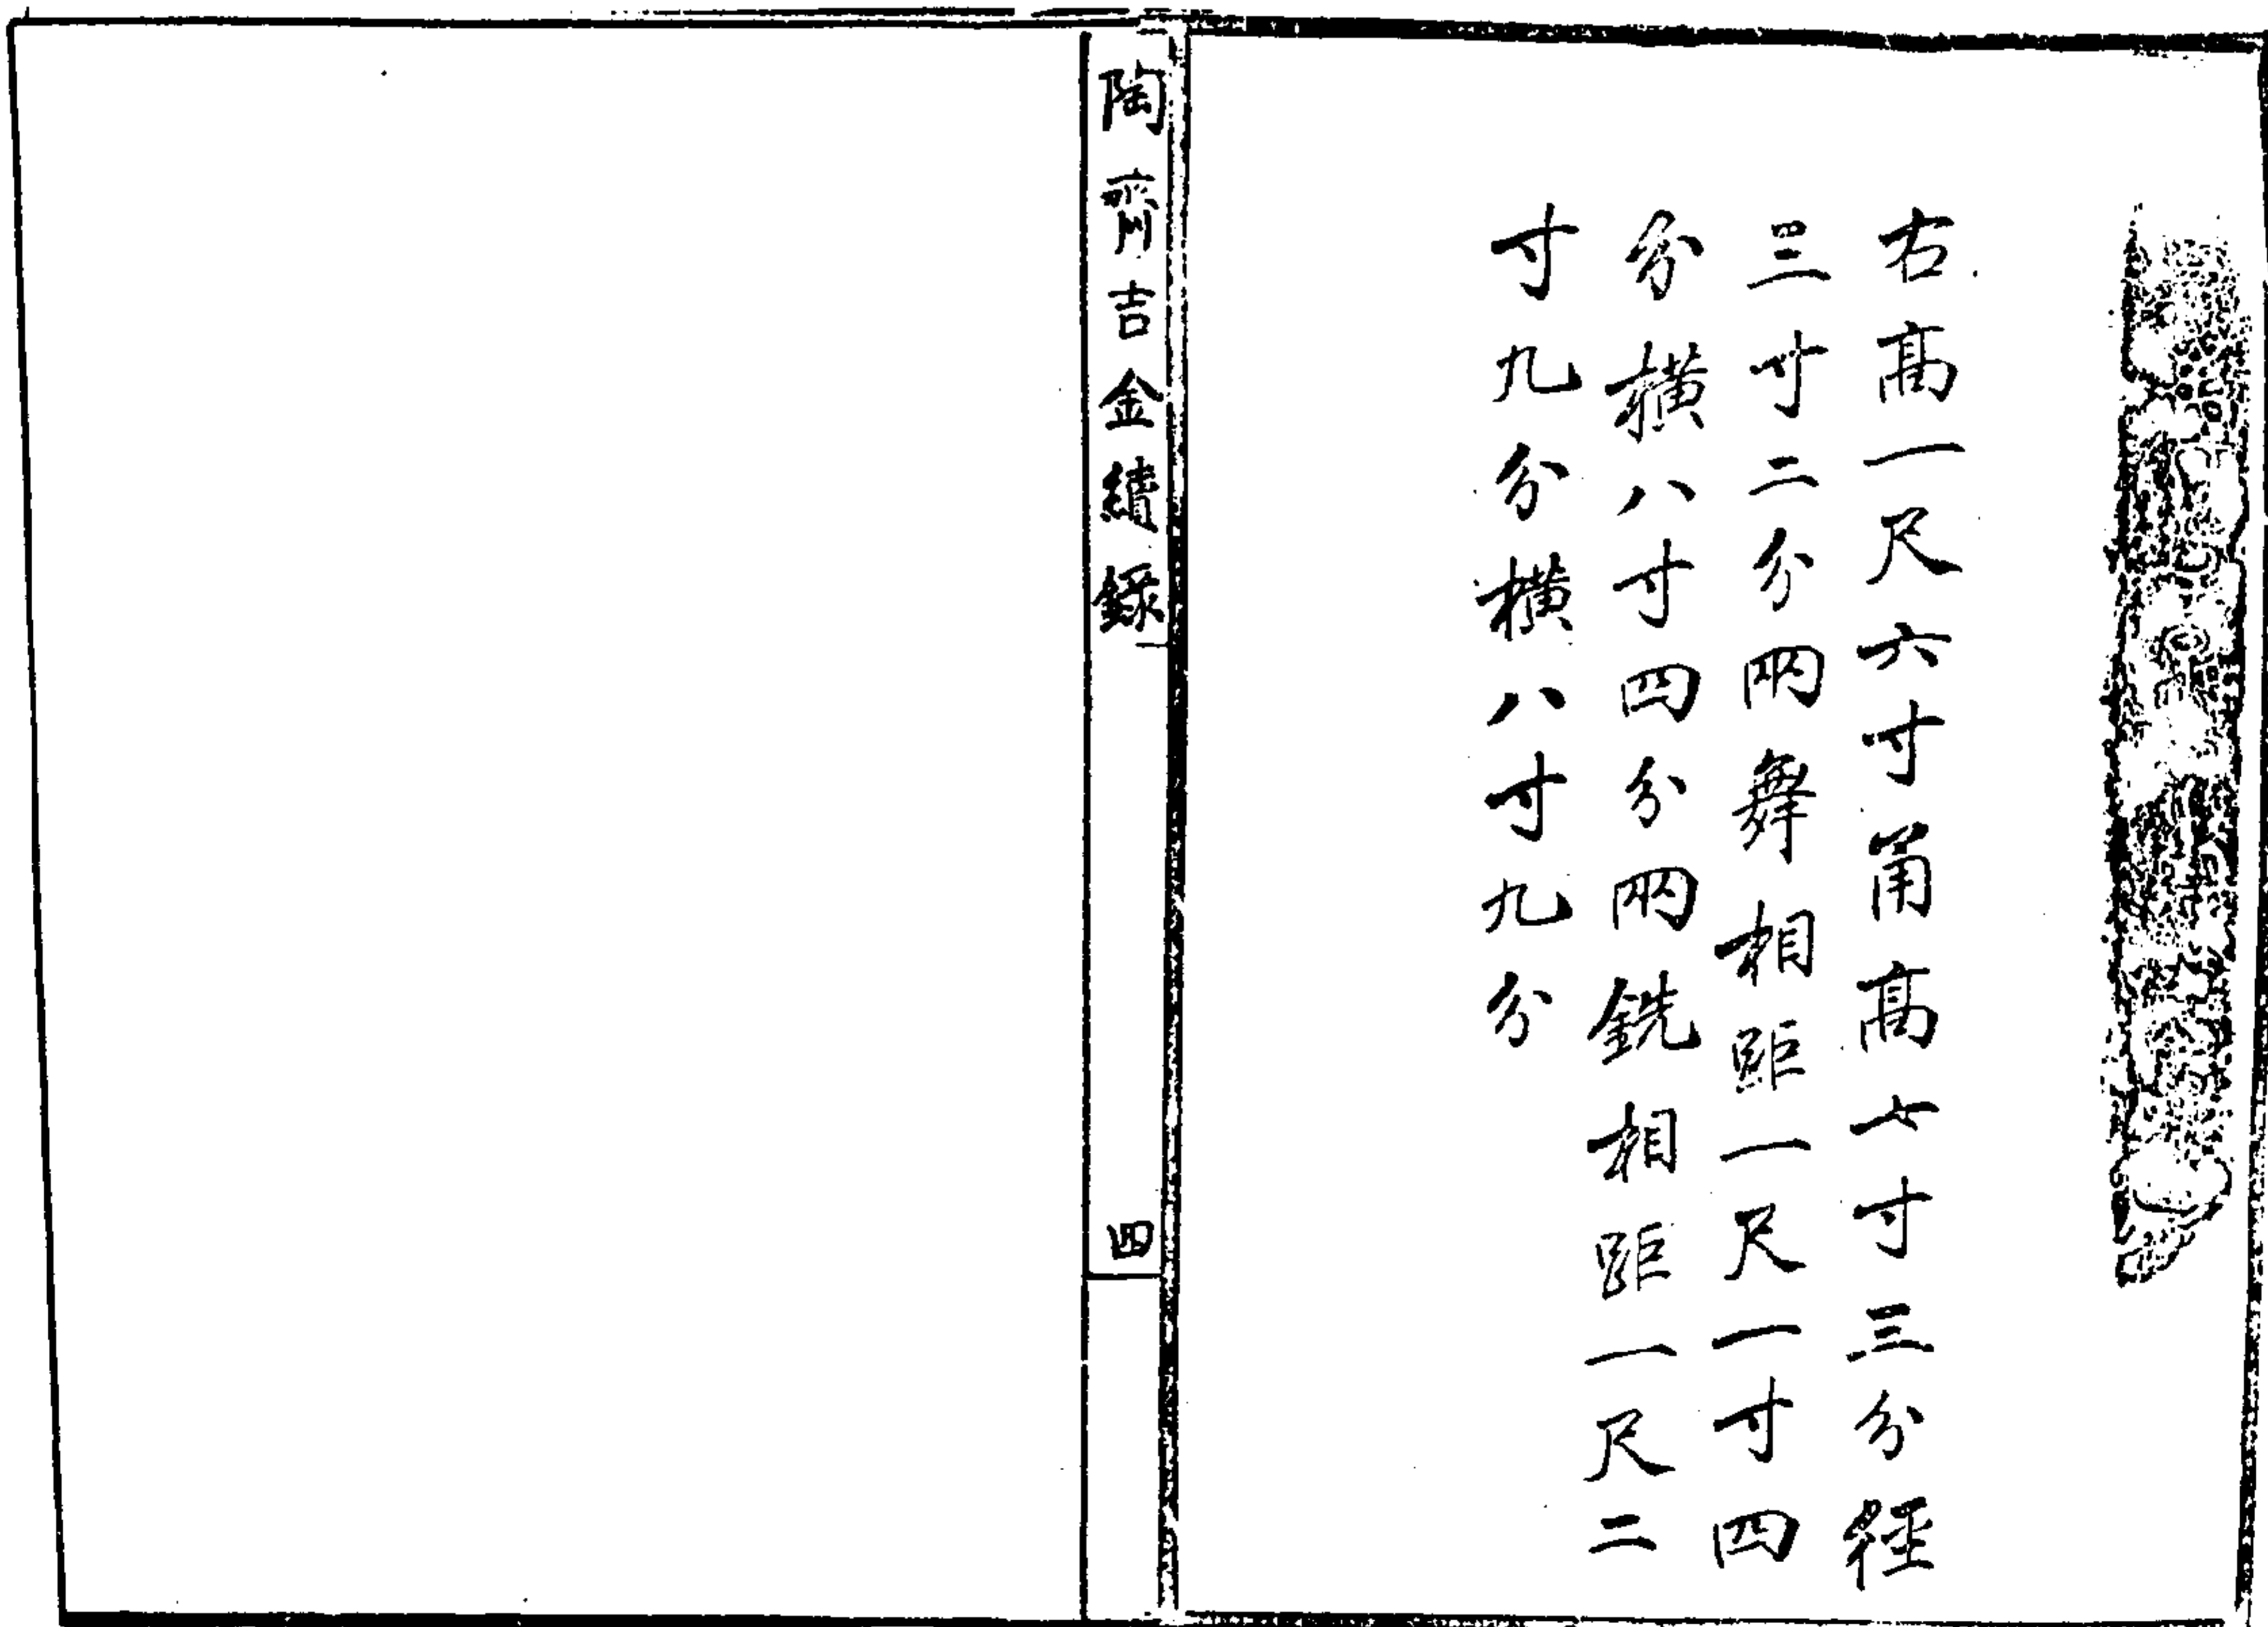 右高一尺六寸甬高七寸三分徑
三寸二分兩舞相距一尺一寸四
分橫八寸四分兩銑相距一尺二
寸九分橫八寸九分
陶齋吉金續錄
四